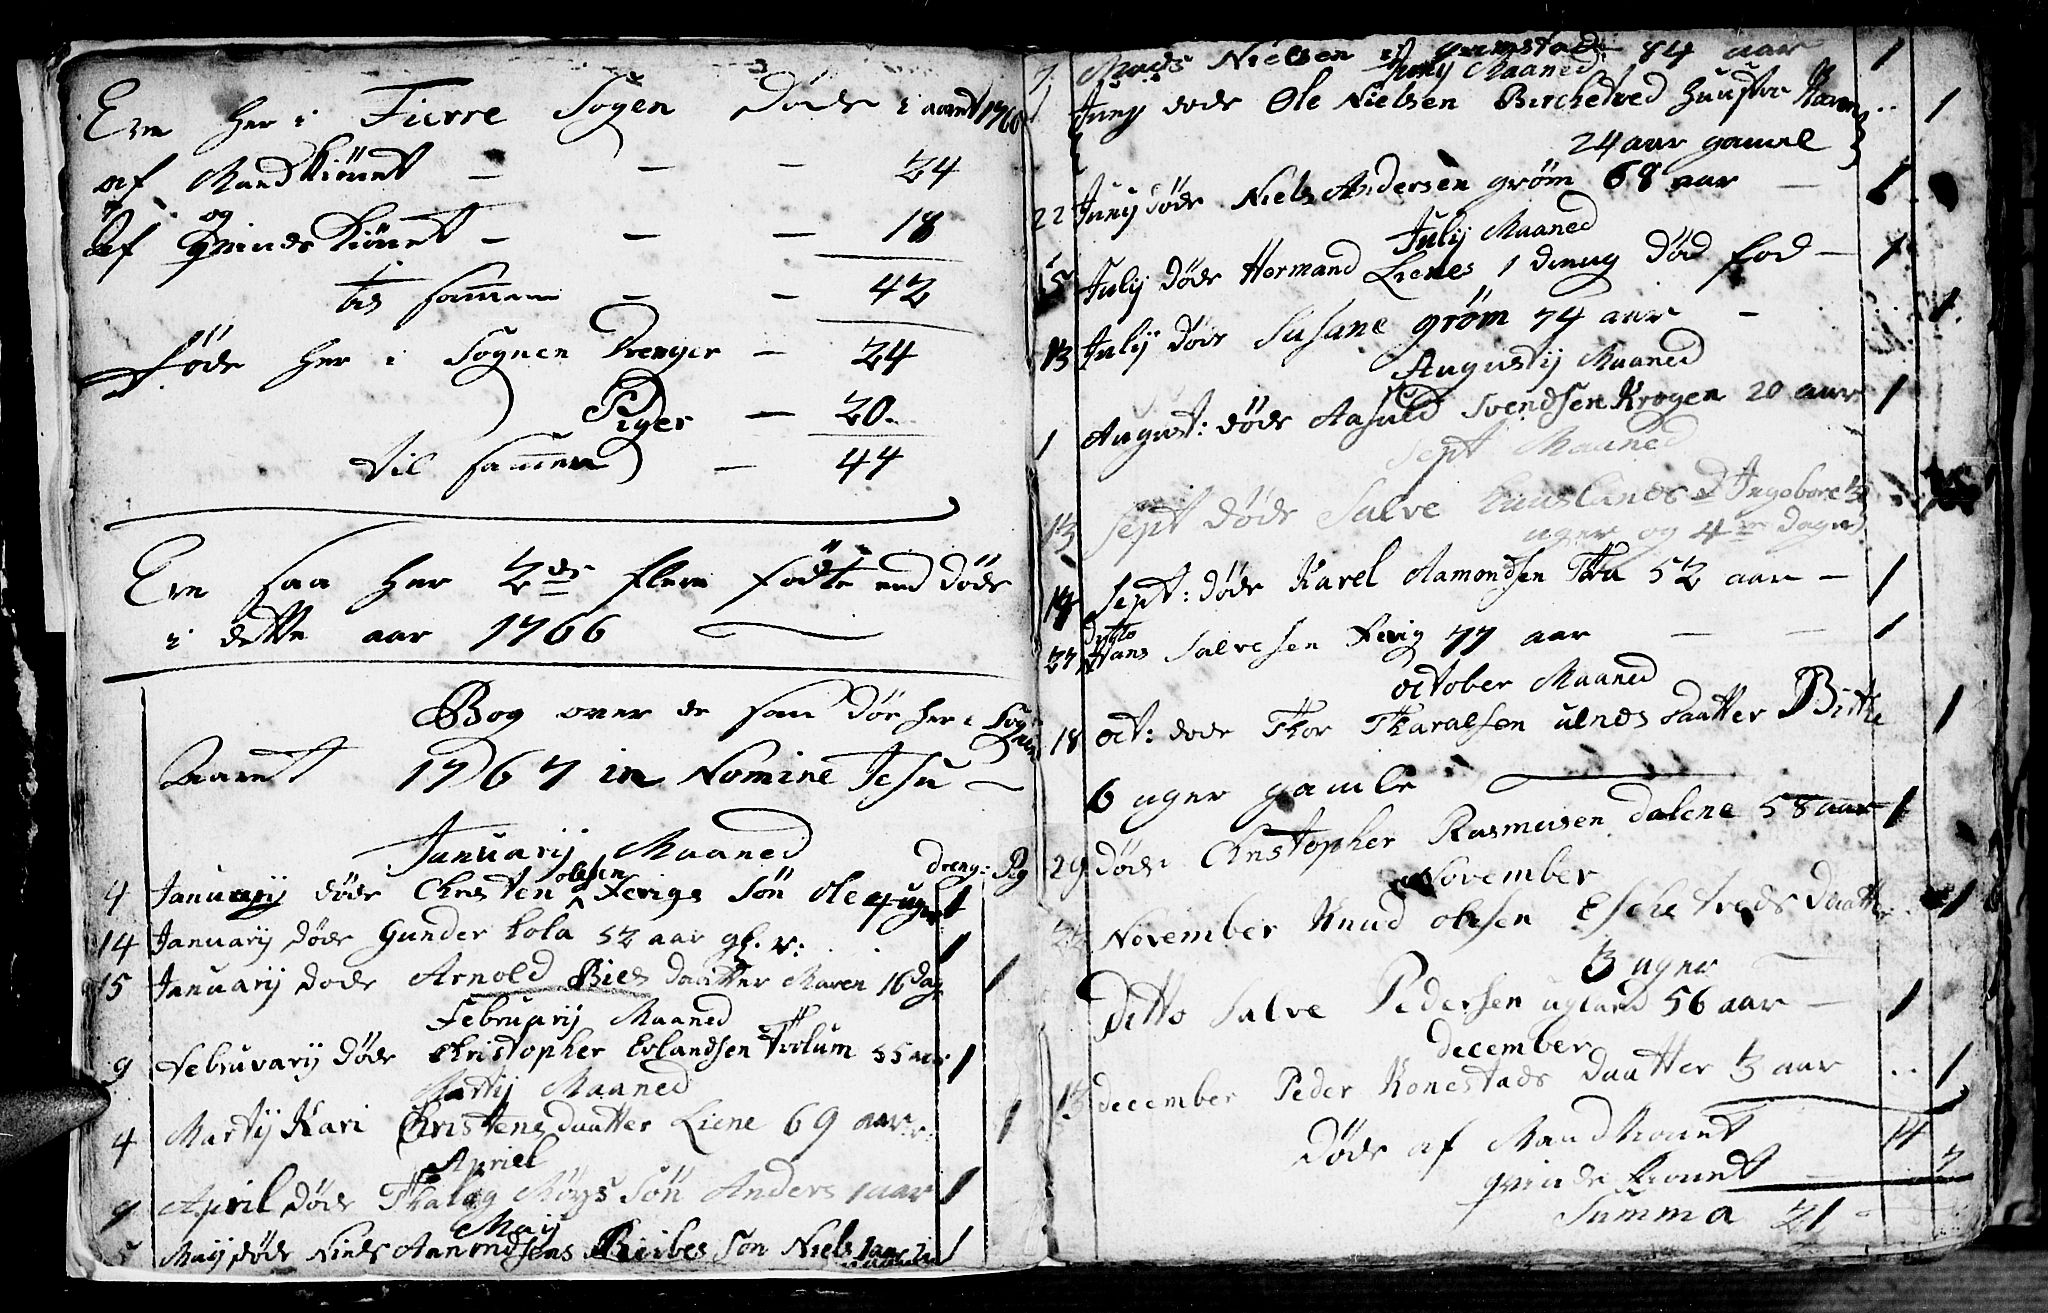 Ere her i Fierre Sogen Døde i aaret 1766
af Mandkiønet — — — 24
og
af qvindekiønet — — — 18
til sammen — — 42
fødde her i Sognen Drenger — 24
Piger — 20
til sammen — 44
Ere saa her 2de flere fødte end døde
i dette aar 1766
Bog over de som dør her i Sognen
Aaret 1767 in Nomine Jesu
Januarij Maaned
Dreng: Pig
4 Januarij døde Christen olssen Fevigs Søn Ole 4 uger 1
14 Januarij døde Gunder Lola 52 aar gl. 1
15 Januarij døde Arnold Bies daatter Maren 16 dag 1
Februarij Maaned
9 Februvarij døde Christopher Erlandsen Trolum 55 aar 1
Martij Maaned
4 Martij Kari Christens daatter Liene 69 aar 1
Apriel
9 April døde Thalag Møys søn Anders 1 aar 1
Maij
5 Maij døde Niels Aamondsens Bribes søn Niels 1 aar 1
7 Mads Nielsen 84 aar 1
Junij Maaned
1 Junij døde Ole Nielsen Birchetved hustroe Karen 1
24 aar gamel
22 Junij døde Niels Andersen grøm 68 aar — 1
Julij Maaned
5 Julij døde Hermand Lienes 1 dreng død fød — 1
13 Julij døde Susane grøm 74 aar — 1
Augustij Maaned
1 August: døde Aasuld Svendsen Krogen 20 aar 1
Sept Maaned
13 Sept døde Salve hauslands D Ingebore 3
uger og 4re Dager
19 Sept: døde Karel Aamondsen 52 aar — 1
ditto
27 Hans Salvesen Fevig 77 aar — — 1
October Maaned
18 oct: døde Thor Tharalsen ulnes daatter Birthe 1
6 uger gamle
29 døde Christopher Rasmusen dalene 58 aar 1
November
November Knud olesen Eschetveds Daatter 1
3 uger
Ditto Salve Pedersen ugland 56 aar — 1
december
13 december Peder Konestads daatter 3 aar 1
Døde af Mandkionet 14
qvindekionet — 7
Summa 21